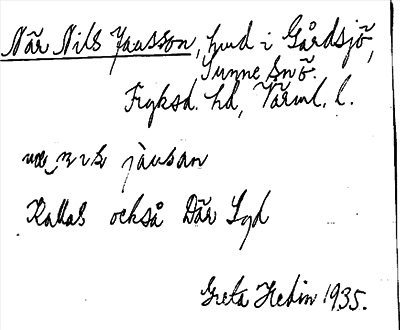 När Nils Jansson, hmd i Gårdsjö,
Sunne snö.
Fryksd. hd, Värml. l.
jànsan
Kallas också Där Syd
Greta Hedin 1935.